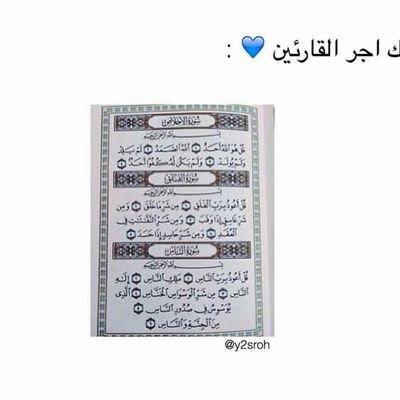 ك اجر القارئين 💙 :
سُورَةُ الْإِخْلَاصِ
بِسْمِ اللَّهِ الرَّحْمَٰنِ الرَّحِيمِ
قُلْ هُوَ اللَّهُ أَحَدٌ ۝١ اللَّهُ الصَّمَدُ ۝٢ لَمْ يَلِدْ
وَلَمْ يُولَدْ ۝٣ وَلَمْ يَكُن لَّهُ كُفُوًا أَحَدٌ ۝٤
سُورَةُ الْفَلَقِ
بِسْمِ اللَّهِ الرَّحْمَٰنِ الرَّحِيمِ
قُلْ أَعُوذُ بِرَبِّ الْفَلَقِ ۝١ مِن شَرِّ مَا خَلَقَ ۝٢ وَمِن
شَرِّ غَاسِقٍ إِذَا وَقَبَ ۝٣ وَمِن شَرِّ النَّفَّٰثَٰتِ فِي
الْعُقَدِ ۝٤ وَمِن شَرِّ حَاسِدٍ إِذَا حَسَدَ ۝٥
سُورَةُ النَّاسِ
بِسْمِ اللَّهِ الرَّحْمَٰنِ الرَّحِيمِ
قُلْ أَعُوذُ بِرَبِّ النَّاسِ ۝١ مَلِكِ النَّاسِ ۝٢ إِلَٰهِ
النَّاسِ ۝٣ مِن شَرِّ الْوَسْوَاسِ الْخَنَّاسِ ۝٤ الَّذِي
يُوَسْوِسُ فِي صُدُورِ النَّاسِ ۝٥
مِنَ الْجِنَّةِ وَالنَّاسِ ۝٦
@y2sroh